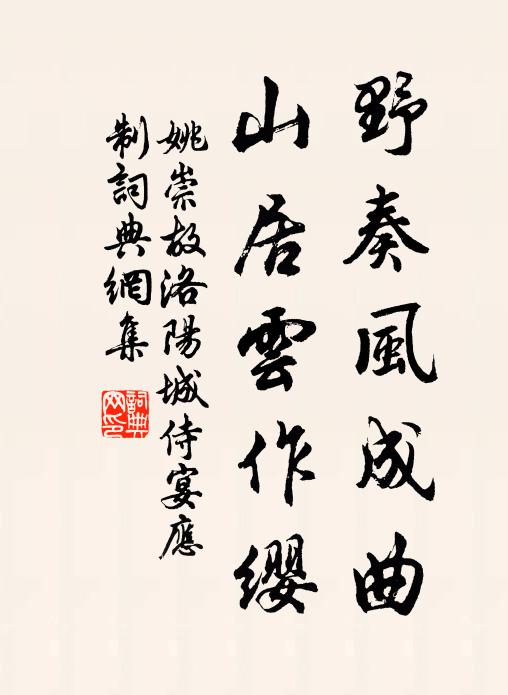 野奏風成曲
山居雲作纓
姚崇故洛陽城侍宴應
制詞典網集
詞典
网印